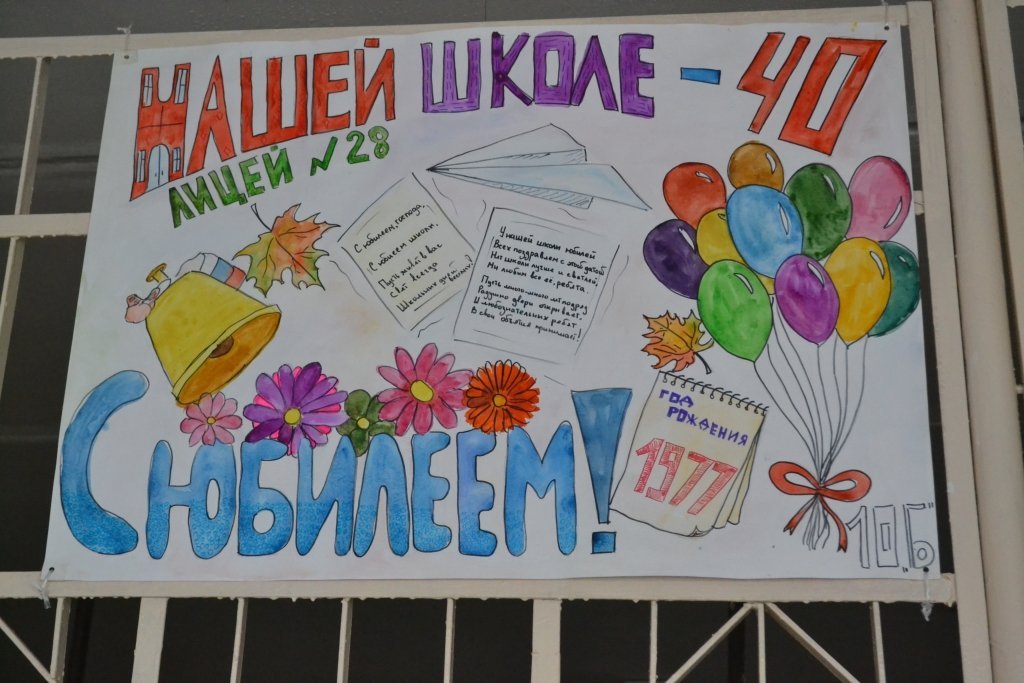 НАШЕЙ ШКОЛЕ - 40
ЛИЦЕЙ №28
С юбилеем, господа,
С юбилеем школы,
Пусть живёт в вас
Свет всегда
Школьных дней
веселых!
У нашей школы юбилей
Всех поздравляем с этой датой
Нет школы лучше и светлей,
Мы любим все её, ребята
Пусть много-много лет подряд
Радушно двери открывает,
И любознательных ребят
В свои объятья принимает!
ГОД
РОЖДЕНИЯ
1977
С ЮБИЛЕЕМ!
10„Б"